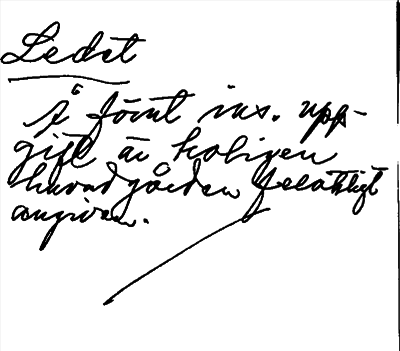 Ledet
Å förut ins. upp-
gift är troligen
huvudgården felaktligt
angiven.